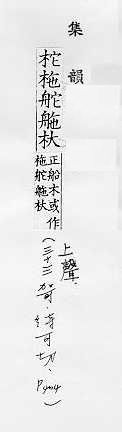 集韻
柁柂舵䑨杕
正船木或作
柂舵䑨杕
上聲、
(三十三哿、待可切、P404)